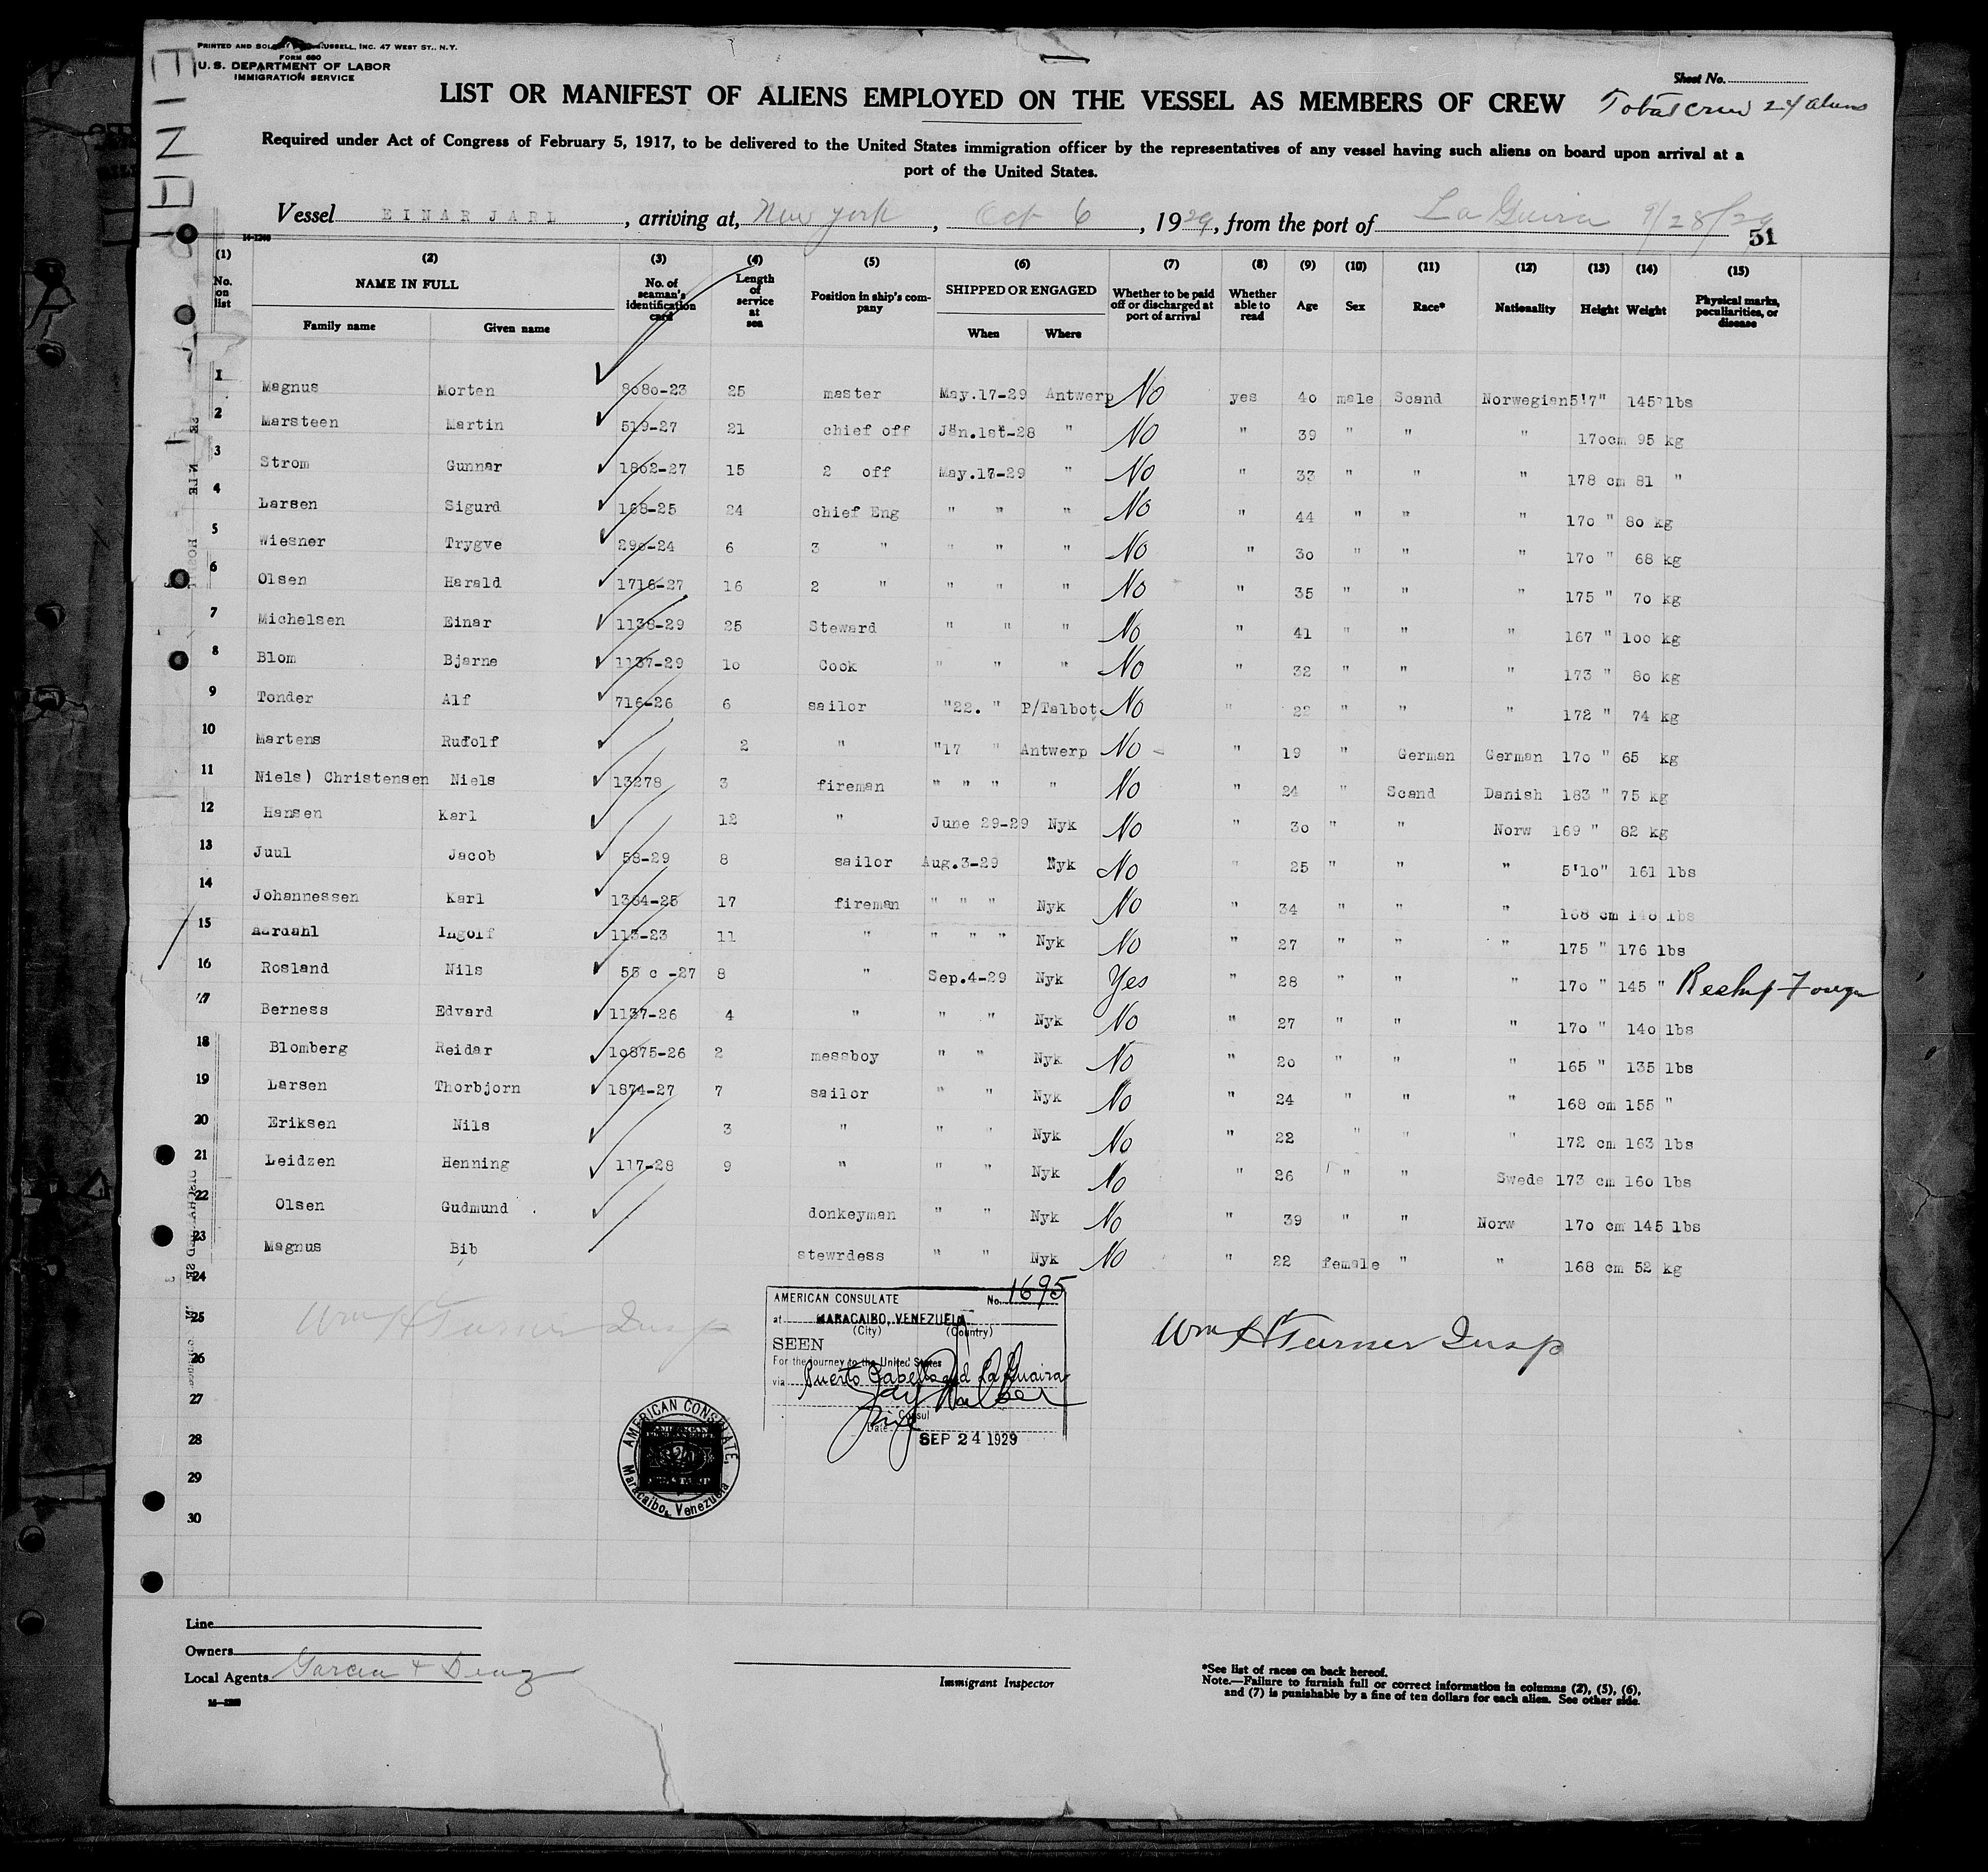 PRINTED AND SOLD BY RUSSELL, INC. 47 WEST ST., N.Y.
FORM 680
U. S. DEPARTMENT OF LABOR
IMMIGRATION SERVICE
Sheet No.
LIST OR MANIFEST OF ALIENS EMPLOYED ON THE VESSEL AS MEMBERS OF CREW
Total crew 24 aliens
Required under Act of Congress of February 5, 1917, to be delivered to the United States immigration officer by the representatives of any vessel having such aliens on board upon arrival at a
port of the United States.
Vessel EINAR JARL, arriving at, New York, Oct 6, 1929, from the port of La Guira 9/28/29
51
14-1240
(1) (2) (3) (4) (5) (6) (7) (8) (9) (10) (11) (12) (13) (14) (15)
No. on list NAME IN FULL Family name Given name No. of seaman's identification card Length of service at sea Position in ship's company SHIPPED OR ENGAGED When Where Whether to be paid off or discharged at port of arrival Whether able to read Age Sex Race* Nationality Height Weight Physical marks, peculiarities, or disease
1 Magnus Morten 8080-23 25 master May.17-29 Antwerp No yes 40 male Scand Norwegian 5'7" 145 lbs
2 Marsteen Martin 519-27 21 chief off Jan.1st-28 " No " 39 " " " 170cm 95 kg
3 Strom Gunnar 1802-27 15 2 off May.17-29 " No " 33 " " " 178 cm 81 "
4 Larsen Sigurd 168-25 24 chief Eng " " " No " 44 " " " 170 " 80 kg
5 Wiesner Trygve 290-24 6 3 " " " " No " 30 " " " 170 " 68 kg
6 Olsen Harald 1716-27 16 2 " " " " No " 35 " " " 175 " 70 kg
7 Michelsen Einar 1138-29 25 Steward " " " No " 41 " " " 167 " 100 kg
8 Blom Bjarne 1137-29 10 Cook " " " No " 32 " " " 173 " 80 kg
9 Tonder Alf 716-26 6 sailor "22. " P/Talbot No " 22 " " " 172 " 74 kg
10 Martens Rudolf 2 " "17 " Antwerp No " 19 " German German 170 " 65 kg
11 Niels) Christensen Niels 13278 3 fireman " " " " No " 24 " Scand Danish 183 " 75 kg
12 Hansen Karl 12 " June 29-29 Nyk No " 30 " " Norw 169 " 82 kg
13 Juul Jacob 58-29 8 sailor Aug.3-29 Nyk No " 25 " " " 5'10" 161 lbs
14 Johannessen Karl 1364-25 17 fireman " " " Nyk No " 34 " " " 168 cm 140 lbs
15 Aardahl Ingolf 113-23 11 " " " " Nyk No " 27 " " " 175 " 176 lbs
16 Rosland Nils 55 c -27 8 " Sep.4-29 Nyk Yes " 28 " " " 170 " 145 " Reship Foreign
17 Berness Edvard 1137-26 4 " " " Nyk No " 27 " " " 170 " 140 lbs
18 Blomberg Reidar 10875-26 2 messboy " " Nyk No " 20 " " " 165 " 135 lbs
19 Larsen Thorbjorn 1874-27 7 sailor " " Nyk No " 24 " " " 168 cm 155 "
20 Eriksen Nils 3 " " " Nyk No " 22 " " " 172 cm 163 lbs
21 Leidzen Henning 117-28 9 " " " Nyk No " 26 " " Swede 173 cm 160 lbs
22 Olsen Gudmund donkeyman " " Nyk No " 39 " " Norw 170 cm 145 lbs
23 Magnus Bib stewrdess " " Nyk No " 22 female " " 168 cm 52 kg
24
25 Wm H Turner Insp
Wm H Turner Insp
26
27
28
29
30
AMERICAN CONSULATE No. 1695
at MARACAIBO, VENEZUELA
(City) (Country)
SEEN
For the journey to the United States
via Puerto Cabello and La Guaira
Consul
Date SEP 24 1929
AMERICAN CONSULATE, Maracaibo, Venezuela
Line
Owners
Local Agents Garcia + Diaz
14-1240
Immigrant Inspector
*See list of races on back hereof.
Note.—Failure to furnish full or correct information in columns (2), (5), (6),
and (7) is punishable by a fine of ten dollars for each alien. See other side.